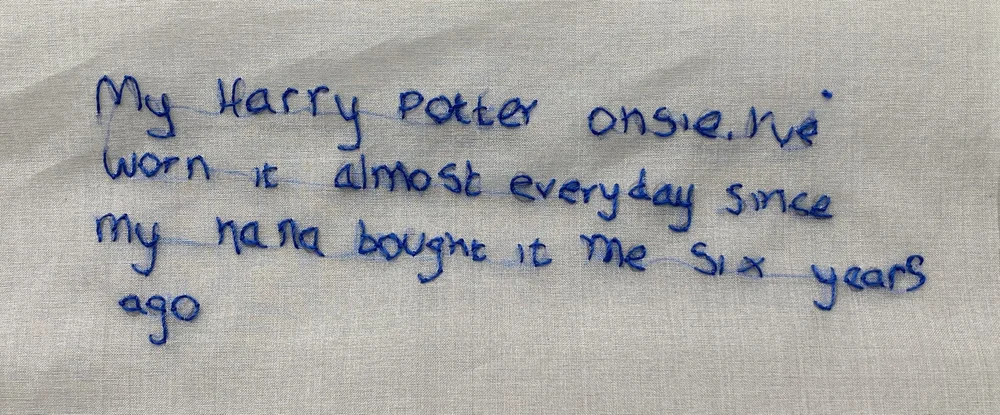 My Harry Potter onsie. I've
worn it almost everyday since
my nana bought it me six years
ago